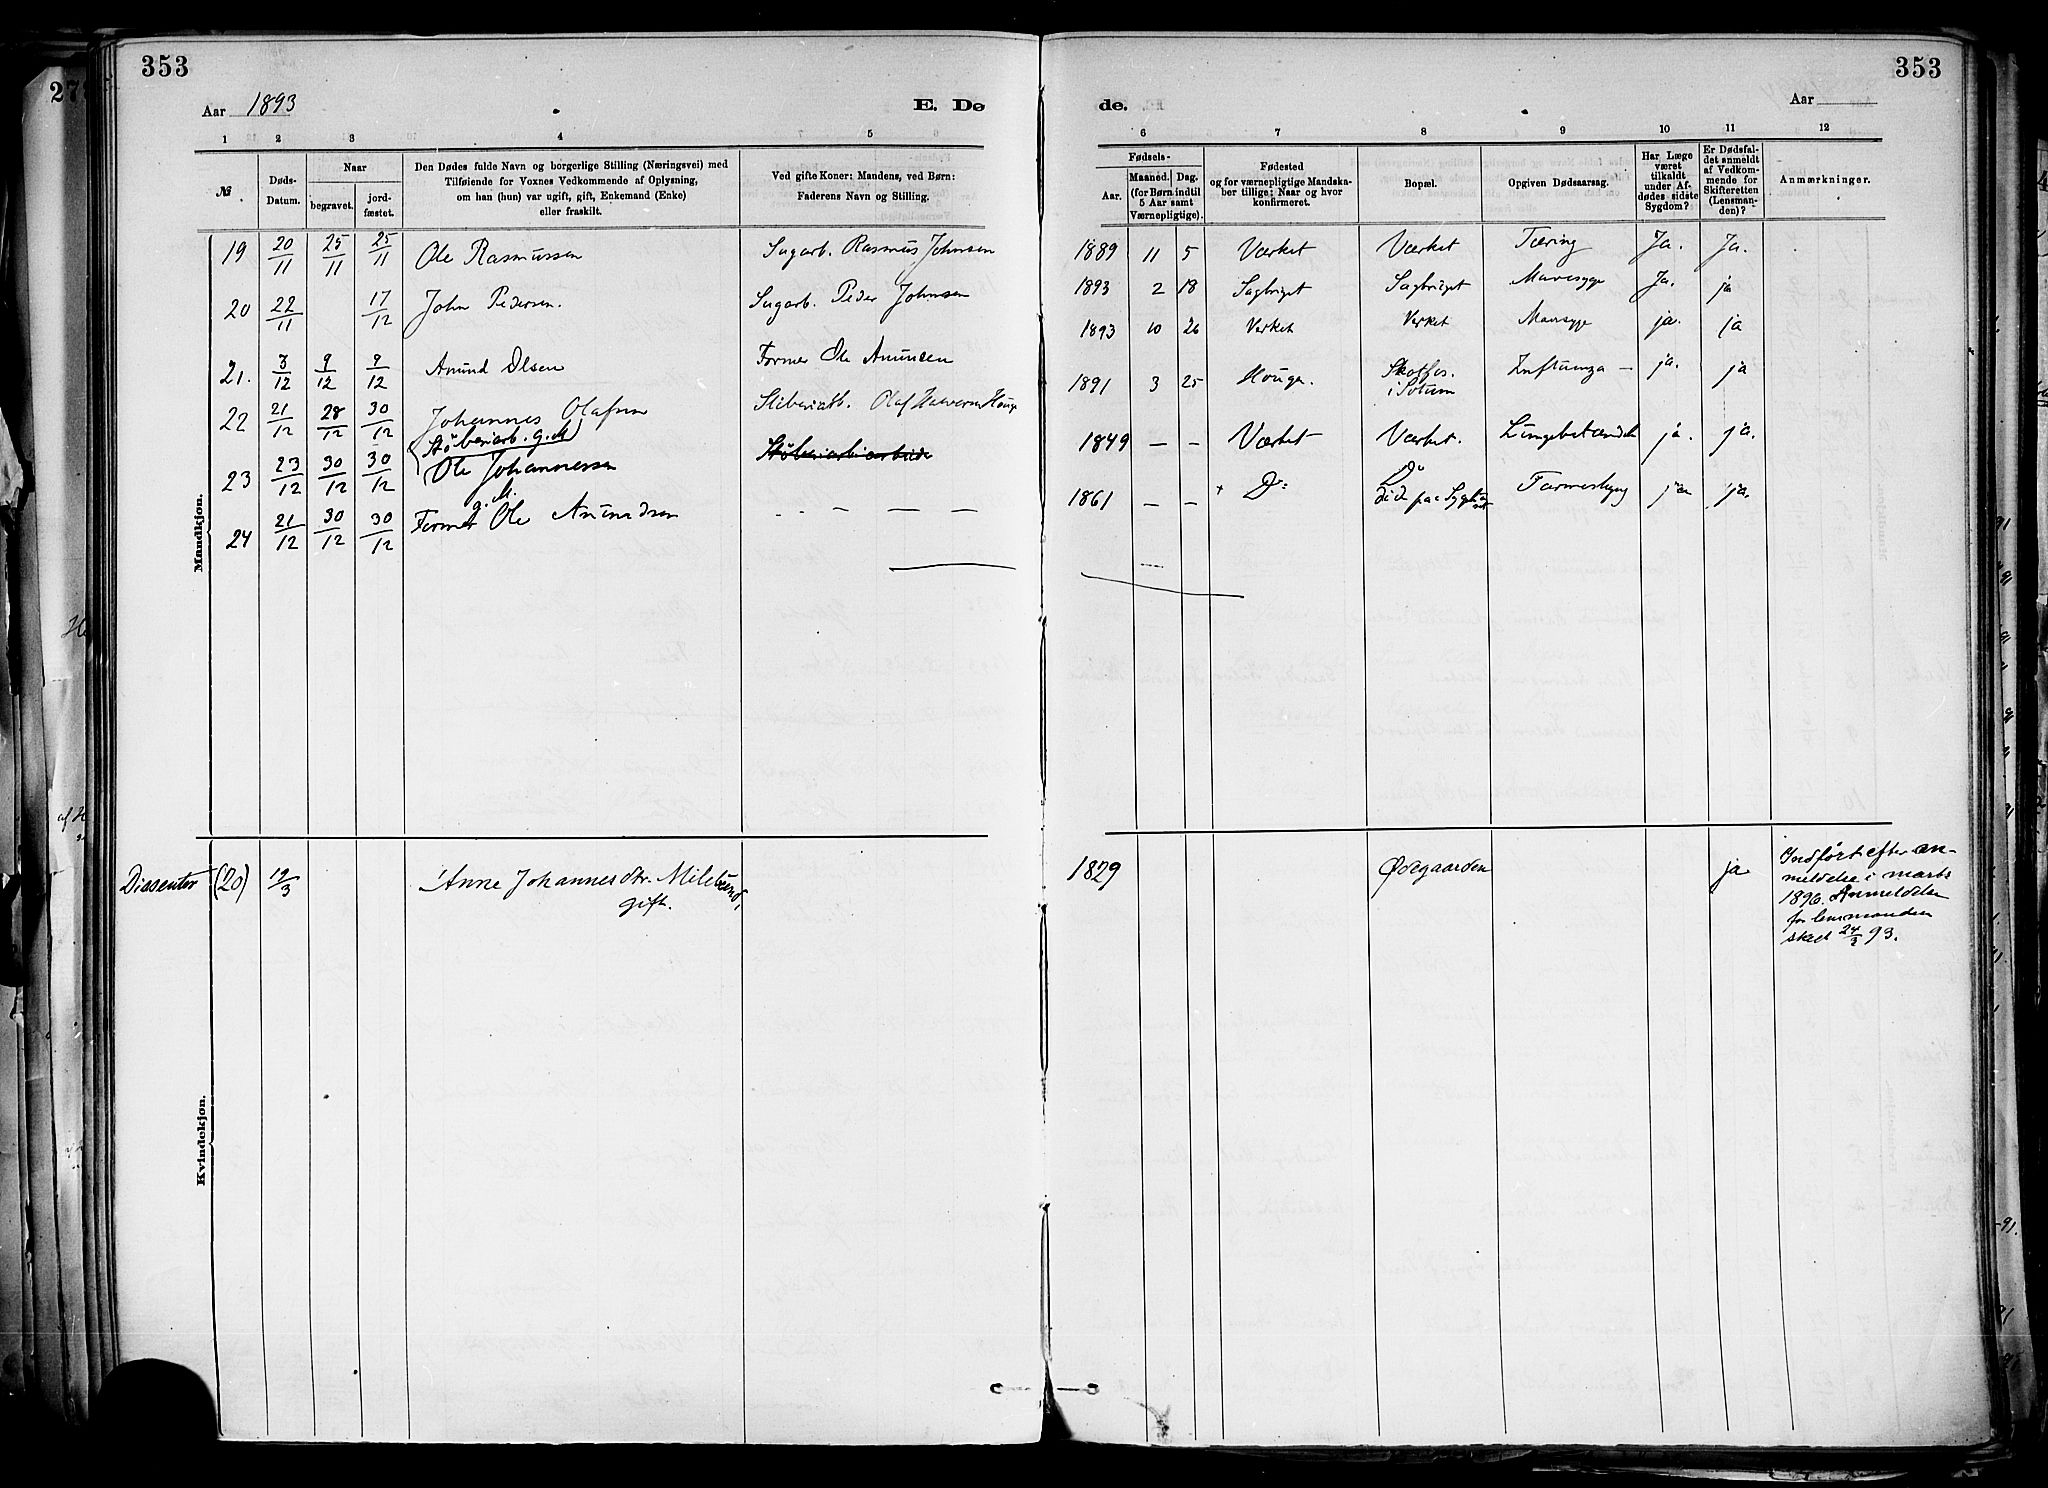 353
353
Aar 1893
E. Dø
de.
Aar
1 2 3 4 5 6 7 8 9 10 11 12
№
Døds-Datum.
Naar
begravet.
jord-fæstet.
Den Dødes fulde Navn og borgerlige Stilling (Næringsvei) med
Tilføiende for Voxnes Vedkommende af Oplysning,
om han (hun) var ugift, gift, Enkemand (Enke)
eller fraskilt.
Ved gifte Koner: Mandens, ved Børn:
Faderens Navn og Stilling.
Fødsels-
Aar.
Maaned. Dag.
(for Børn indtil
5 Aar samt
Værnepligtige).
Fødested
og for værnepligtige Mandska-
ber tillige: Naar og hvor
konfirmeret.
Bopæl.
Opgiven Dødsaarsag.
Har Læge
været
tilkaldt
under Af-
dødes sidste
Sygdom?
Er Dødsfal-
det anmeldt
af Vedkom-
mende for
Skifteretten
(Lensman-
den)?
Anmærkninger.
Mandkjøn.
19 20/11 25/11 25/11 Ole Rasmussen Sagarb. Rasmus Johnsen 1889 11 5 Værket Værket Tæring Ja. Ja.
20 22/11 17/12 John Pedersen. Sagarb. Peder Johnsen 1893 2 18 Sagbruget Sagbruget Mavesyge Ja. ja
21. 3/12 9/12 9/12 Anund Olsen Former Ole Anunsen 1893 10 26 Verket Verket Mavesyge ja. ja
22 21/12 28/12 30/12 Johannes Olafsen Olaf 1891 3 25 Houger. Skotfos. i Solum ja. ja
23 23/12 30/12 30/12 Støberiarb. g. M
Ole Johannessen 1849 — — Værket Værket. Lungebetændelse ja. ja.
24 21/12 30/12 30/12 g. M.
Former Ole Anundsen — — — 1861 — — D: Do
døde paa ja ja.
Kvindekjøn.
Dissenter (20) 19/3 Anne Johannesdtr.
gift. 1829 Ødegaarden ja
Indført efter an-
meldelse i marts
1896. Anmeldelse
for lensmanden
skeet 24/3 93.